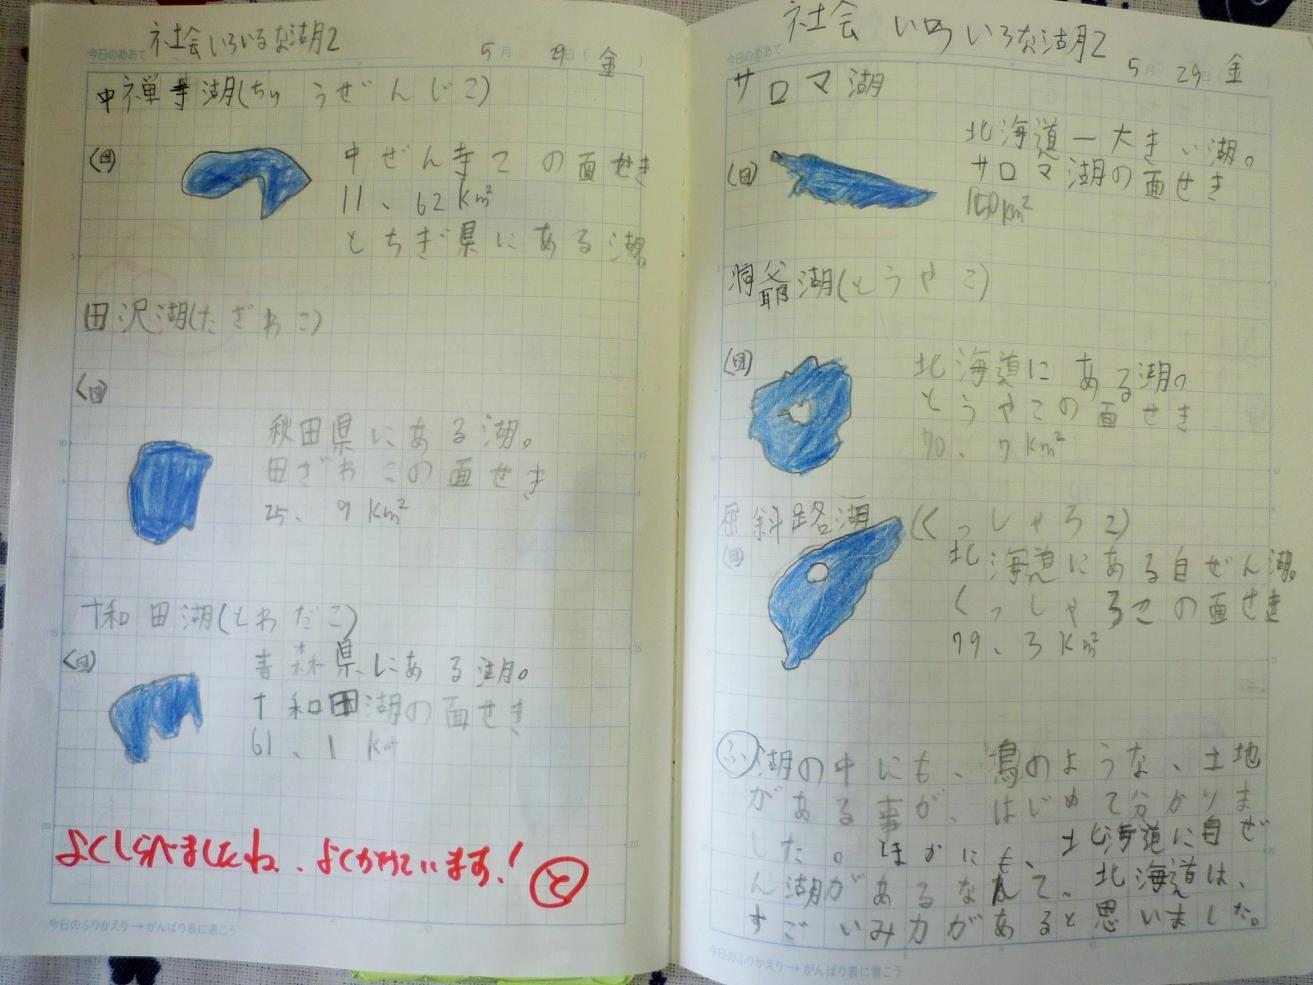 今日のめあて
社会いろいろな湖2
5月29日(金)
中禅寺湖(ちゅうぜんじこ)
(図)
中ぜん寺この面せき
11、62km²
とちぎ県にある湖。
田沢湖(たざわこ)
(図)
秋田県にある湖。
田ざわこの面せき
25、9km²
十和田湖(とわだこ)
(図)
青森県にある湖。
十和田湖の面せき
61、1km²
よくしらべましたね、よくかけています!
今日のふりかえり→がんばり表に書こう
今日のめあて
社会 いろいろな湖2
5月29日(金)
サロマ湖
(図)
北海道一大きい湖。
サロマ湖の面せき
150km²
洞爺湖(とうやこ)
(図)
北海道にある湖。
とうやこの面せき
70、7km²
屈斜路湖(くっしゃろこ)
(図)
北海道にある自ぜん湖。
くっしゃろこの面せき
79、3km²
ふ 湖の中にも、島のような、土地
がある事が、はじめて分かりま
した。ほかにも、北海道に自ぜ
ん湖があるなんて、北海道は、
すごいみ力があると思いました。
今日のふりかえり→がんばり表に書こう